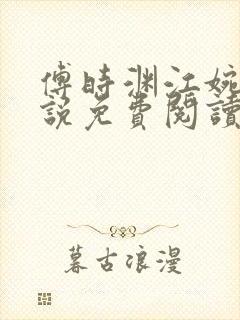 傅時渊江婉
說免費閱讀
暮古浪漫